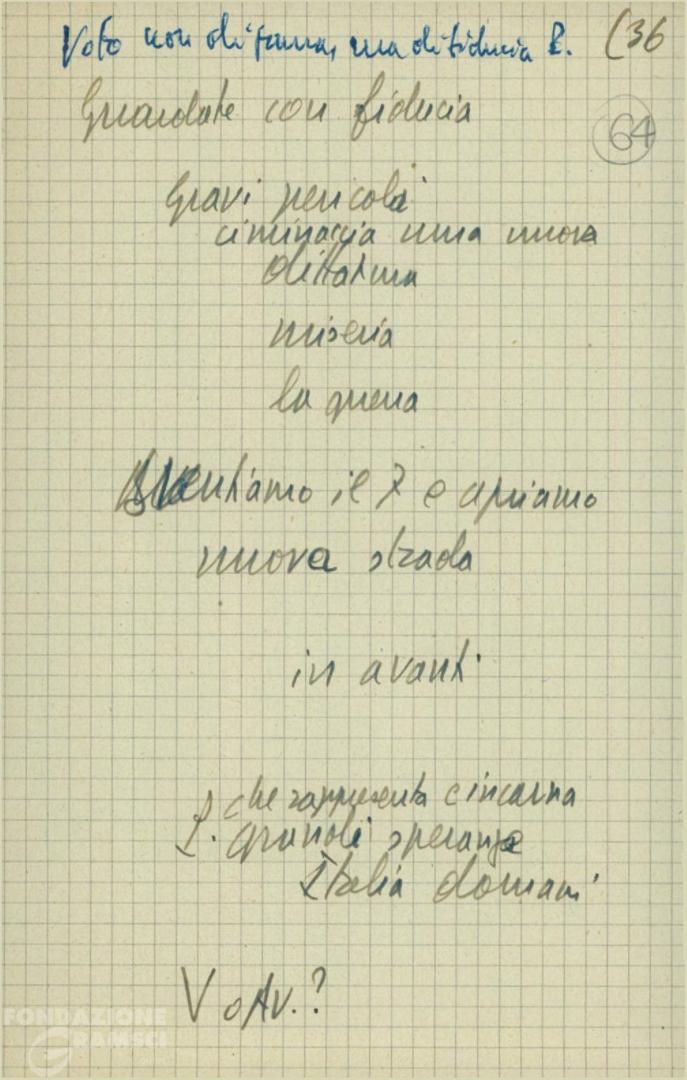 Voto non di paura, ma di fiducia P. (36
Guardate con fiducia
64
Gravi pericoli
ci minaccia una nuova
dittatura
miseria
la guerra
Sventiamo il 7 e apriamo
nuova strada
in avanti
che rappresenta e incarna
P. grandi speranze
Italia domani
V o Av.?
FONDAZIONE
GRAMSCI